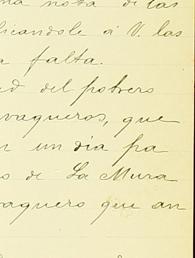 na nota de las
icandole á V. las
a falta.
ed del potrero
vaqueros, que
un dia pa
s de La Mura
aquero que an